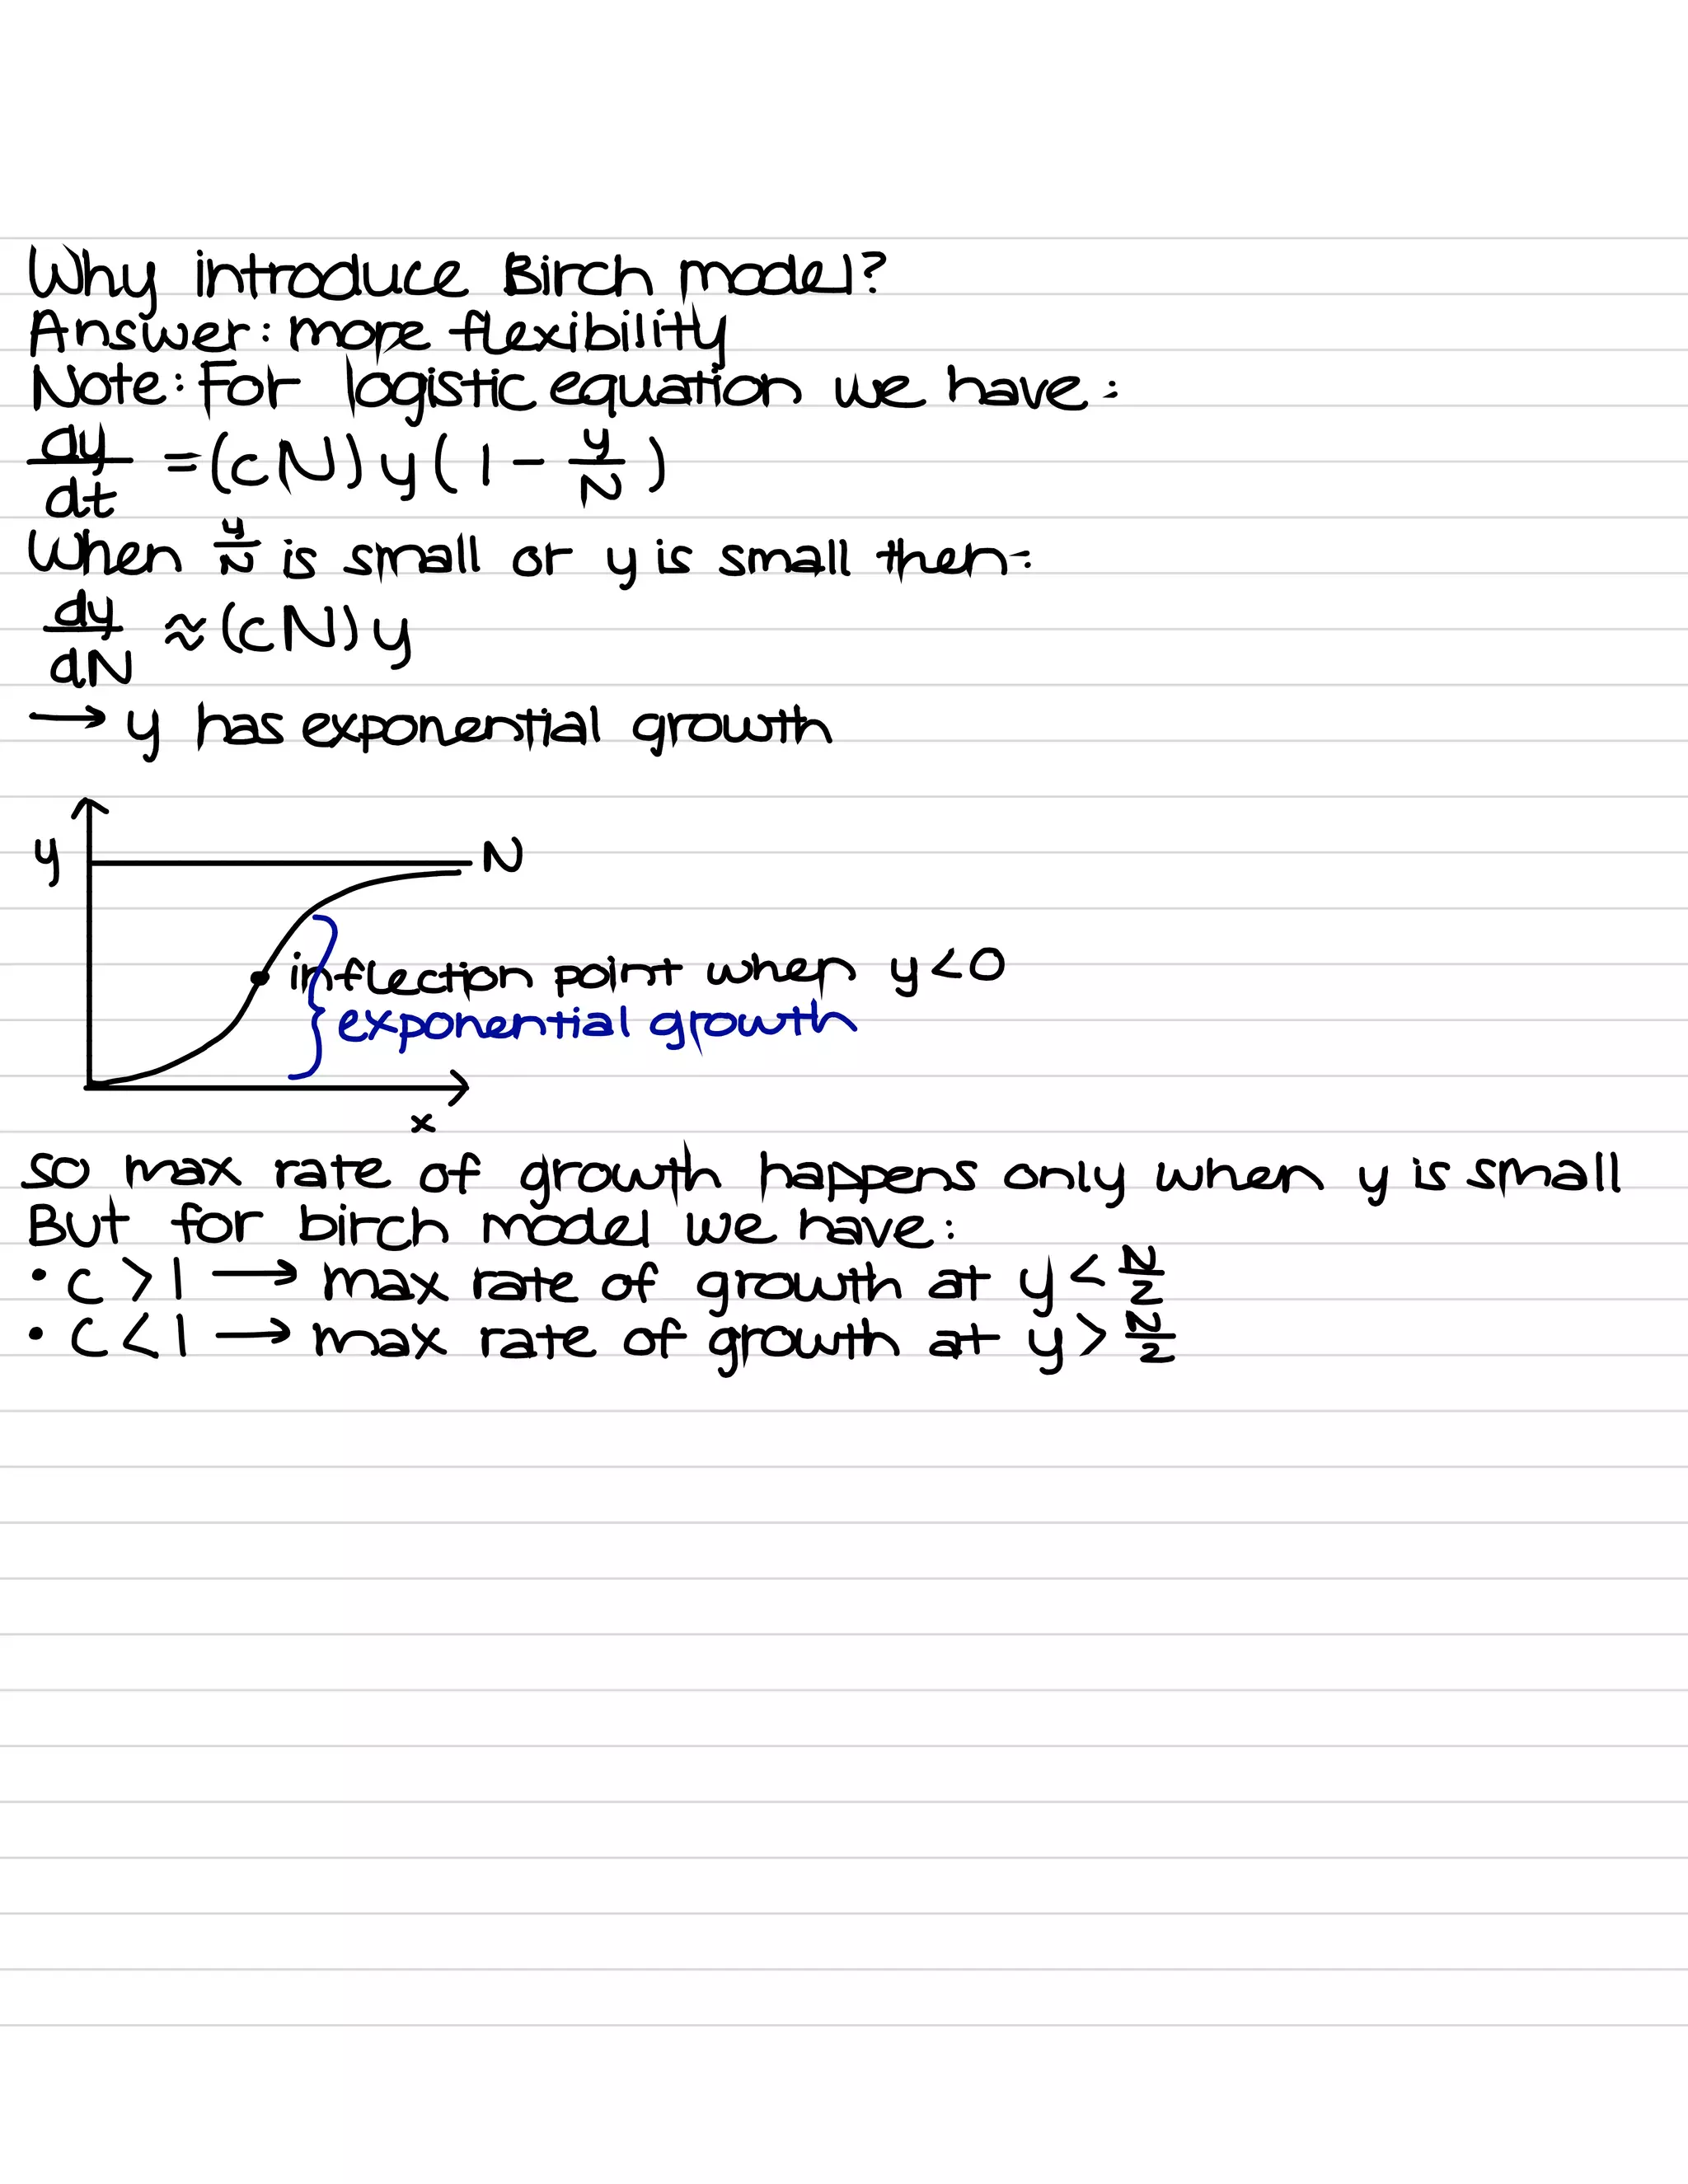 Why introduce Birch model?
Answer: more flexibility
Note: For logistic equation we have:
dy/dt = (cN)y(1 - y/N)
When y/N is small or y is small then:
dy/dN ≈ (cN)y
→ y has exponential growth
y
N
inflection point when y<0
exponential growth
x
so max rate of growth happens only when y is small
But for birch model we have:
• c > 1 → max rate of growth at y < N/2
• c < 1 → max rate of growth at y > N/2